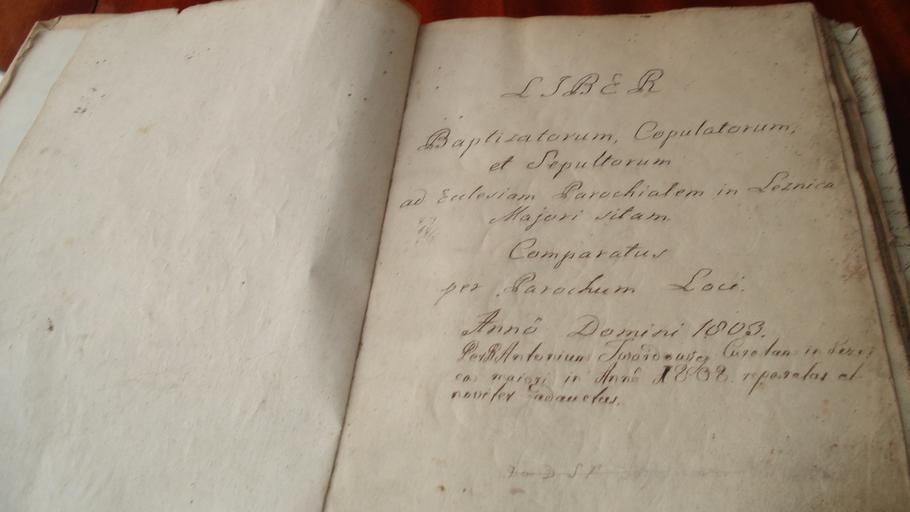 LIBER
Baptisatorum, Copulatorum,
et Sepultorum
ad Eclesiam Parochialem in Leznica
Majori sitam
Comparatus
per Parochum Loci.
Annô Domini 1803.
Per R Antonium Curatum in
maiori in Annô 1838 reparatus et
noviter adauctus.